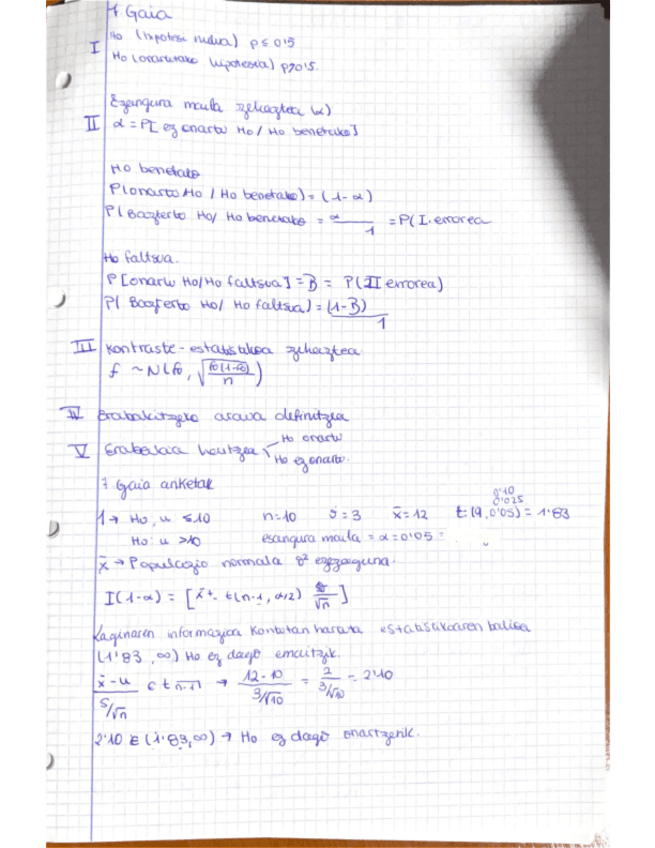 7. Gaia
I Ho (hipotesi nulua) p ≤ 0'5
Ho (ordezko hipotesia) p>0'5.
Esangura maila zehaztea (α)
II α = P[ ez onartu Ho / Ho benetako]
Ho benetako
P(onartu Ho / Ho benetako) = (1-α)
P( Bazterto Ho / Ho benetako = α = P( I. errorea
1
Ho faltsua.
P [onartu Ho/Ho faltsua] = B = P(II errorea)
P( Bazterto Ho/ Ho faltsua) = (1-B)
1
III Kontraste-estatistikoa zehaztea
f ~ N(fo, √fo(1-fo)/n)
IV Erabakitzeko araua definitzea
V Erabakia hautzea Ho onartu
Ho ez onartu.
7 Gaia anketak
0'10
0'025
1 → Ho, u ≤ 10 n=10 s=3 x̄=12 t(9, 0'05) = 1'83
Ho: u > 10 esangura maila = α = 0'05 =
x̄ → Populazio normala σ² ezezaguna.
I(1-α) = [x̄ +- t(n-1, α/2) s/√n]
Laginaren informazioa kontutan haruta estatistikoaren balioa
(1'83, ∞) Ho ez dago emaitzik.
x̄-u / s/√n ∈ t n-1 → 12-10 / 3/√10 = 2 / 3/√10 = 2'10
2'10 ∈ (1'83, ∞) → Ho ez dago onartzerik.